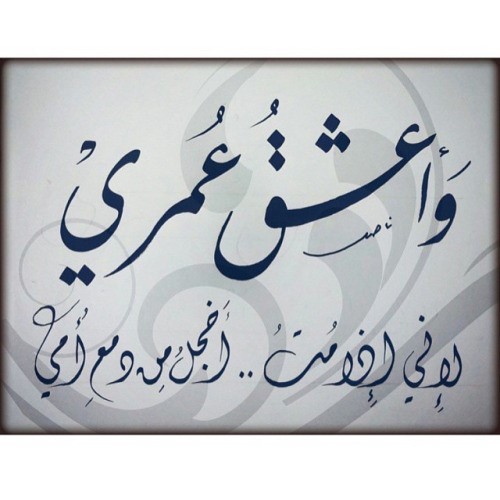 وَأعشَقُ عُمرِي
ناصر
لإني إذا متُ .. أخجلُ من دمعِ أُمي